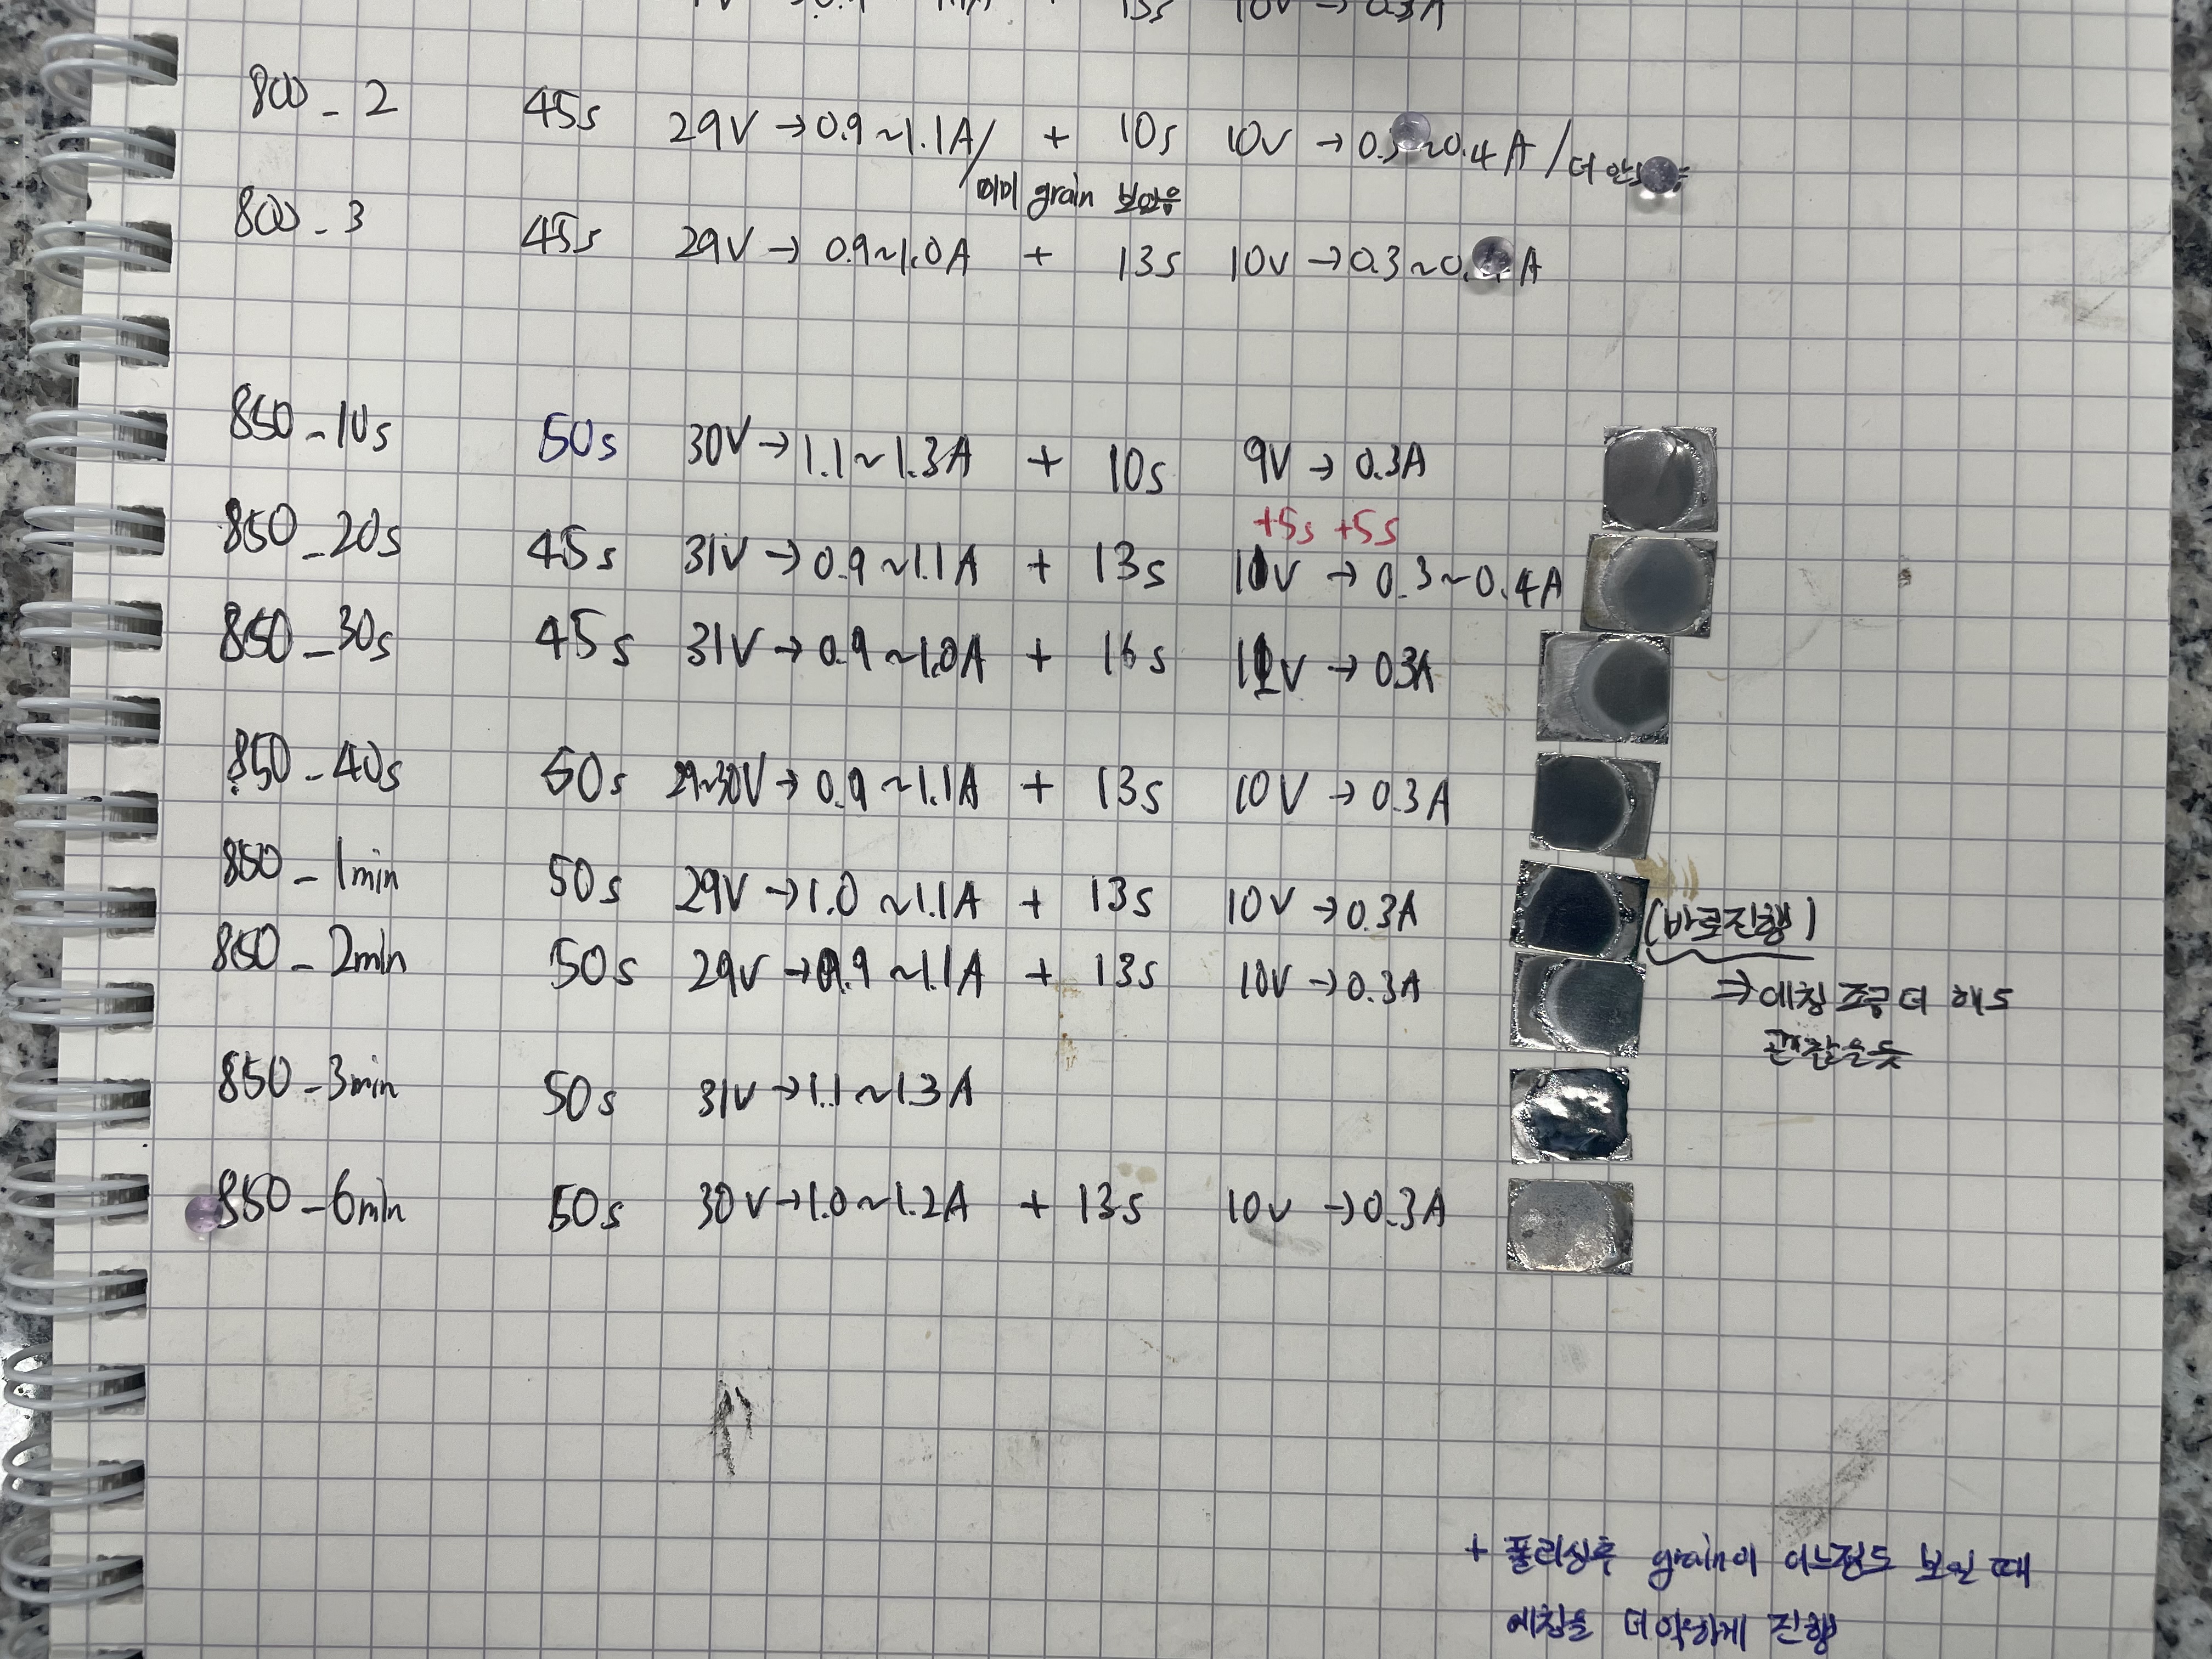 13s 10V → 0.3A
800 - 2 45s 29V → 0.9 ~ 1.1A / + 10s 10V → 0. ~0.4A / 더
이미 grain 보았음
800 - 3 45s 29V → 0.9~1.0A + 13s 10V → 0.3 ~ 0. A
850 - 10s 50s 30V → 1.1 ~ 1.3A + 10s 9V → 0.3A
+5s +5s
850 - 20s 45s 31V → 0.9 ~ 1.1A + 13s → 0.3 ~ 0.4A
850 - 30s 45s 31V → 0.9 ~ 1.0A + 16s → 0.3A
850 - 40s 50s 29~30V → 0.9 ~ 1.1A + 13s 10V → 0.3A
850 - 1min 50s 29V → 1.0 ~ 1.1A + 13s 10V → 0.3A
(바로진행)
850 - 2min 50s 29V → 0.9 ~ 1.1A + 13s 10V → 0.3A
⇒ 에칭 조금 더 해도
괜찮을듯
850 - 3min 50s 31V → 1.1 ~ 1.3A
850 - 6min 50s 30V → 1.0 ~ 1.2A + 13s 10V → 0.3A
+ 폴리싱후 grain이 어느정도 보일 때
에칭을 더 약하게 진행